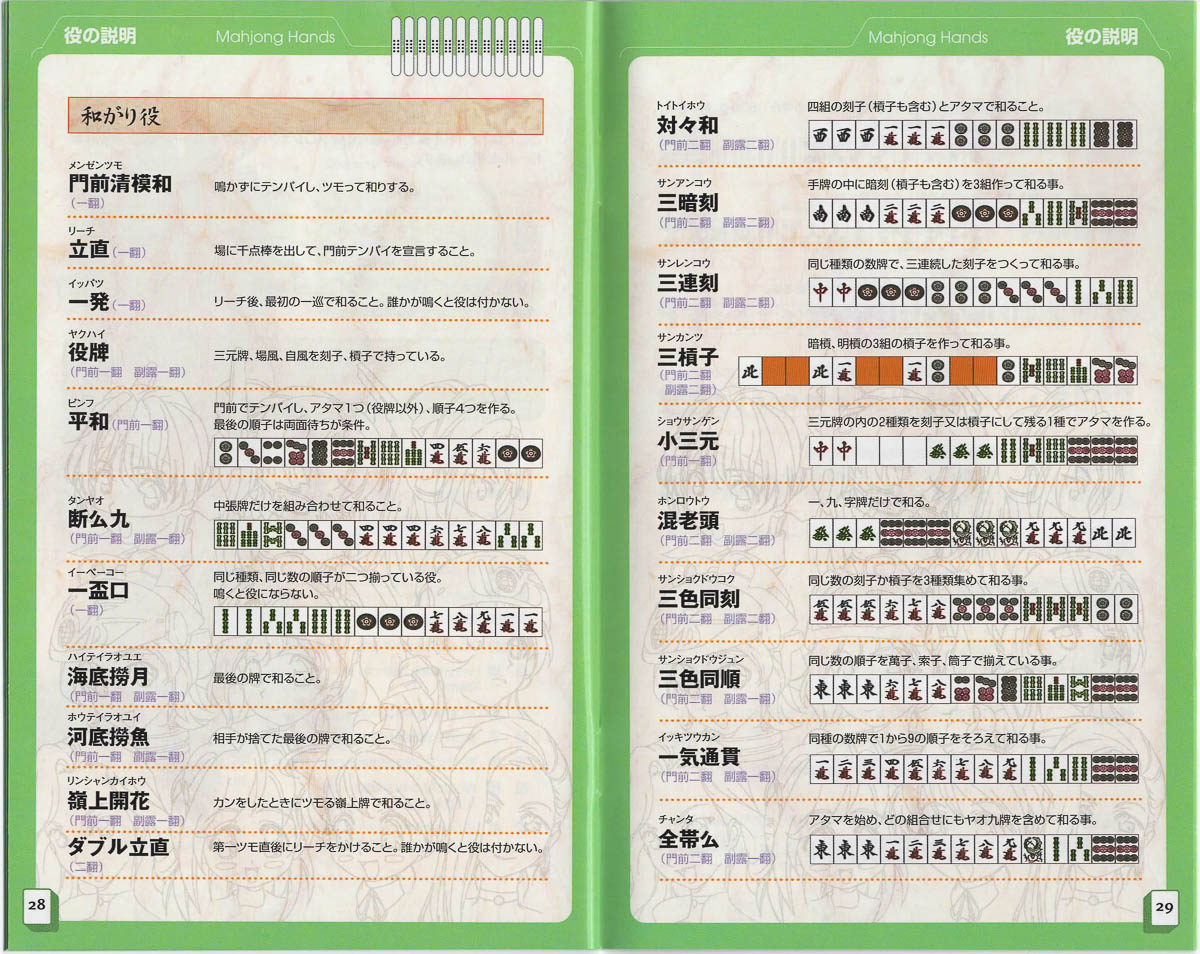 役の説明
Mahjong Hands
和がり役
メンゼンツモ
門前清模和
(一翻)
鳴かずにテンパイし、ツモって和りする。
リーチ
立直(一翻)
場に千点棒を出して、門前テンパイを宣言すること。
イッパツ
一発(一翻)
リーチ後、最初の一巡で和ること。誰かが鳴くと役は付かない。
ヤクハイ
役牌
(門前一翻 副露一翻)
三元牌、場風、自風を刻子、槓子で持っている。
ピンフ
平和(門前一翻)
門前でテンパイし、アタマ1つ(役牌以外)、順子4つを作る。
最後の順子は両面待ちが条件。
四萬 五萬 六萬
タンヤオ
断么九
(門前一翻 副露一翻)
中張牌だけを組み合わせて和ること。
四萬 四萬 四萬 六萬 七萬 八萬
イーペーコー
一盃口
(一翻)
同じ種類、同じ数の順子が二つ揃っている役。
鳴くと役にならない。
七萬 八萬 九萬 一萬 一萬
ハイテイラオユエ
海底撈月
(門前一翻 副露一翻)
最後の牌で和ること。
ホウテイラオユイ
河底撈魚
(門前一翻 副露一翻)
相手が捨てた最後の牌で和ること。
リンシャンカイホウ
嶺上開花
(門前一翻 副露一翻)
カンをしたときにツモる嶺上牌で和ること。
ダブル立直
(二翻)
第一ツモ直後にリーチをかけること。誰かが鳴くと役は付かない。
28
Mahjong Hands
役の説明
トイトイホウ
対々和
(門前二翻 副露二翻)
四組の刻子(槓子も含む)とアタマで和ること。
西 西 西 一萬 一萬 一萬
サンアンコウ
三暗刻
(門前二翻 副露二翻)
手牌の中に暗刻(槓子も含む)を3組作って和る事。
南 南 南 二萬 二萬 二萬
サンレンコウ
三連刻
(門前二翻 副露二翻)
同じ種類の数牌で、三連続した刻子をつくって和る事。
中 中
サンカンツ
三槓子
(門前二翻
副露二翻)
暗槓、明槓の3組の槓子を作って和る事。
北 北 一萬 一萬
ショウサンゲン
小三元
(門前一翻)
三元牌の内の2種類を刻子又は槓子にして残る1種でアタマを作る。
中 中 發 發 發
ホンロウトウ
混老頭
(門前二翻 副露二翻)
一、九、字牌だけで和る。
發 發 發 九萬 九萬 九萬 北 北
サンショクドウコク
三色同刻
(門前二翻 副露二翻)
同じ数の刻子か槓子を3種類集めて和る事。
五萬 五萬 五萬 六萬 七萬 八萬
サンショクドウジュン
三色同順
(門前二翻 副露一翻)
同じ数の順子を萬子、索子、筒子で揃えている事。
東 東 東 六萬 七萬 八萬
イッキツウカン
一気通貫
(門前二翻 副露一翻)
同種の数牌で1から9の順子をそろえて和る事。
一萬 二萬 三萬 四萬 五萬 六萬 七萬 八萬 九萬
チャンタ
全帯么
(門前二翻 副露一翻)
アタマを始め、どの組合せにもヤオ九牌を含めて和る事。
東 東 東 一萬 二萬 三萬 七萬 八萬 九萬
29